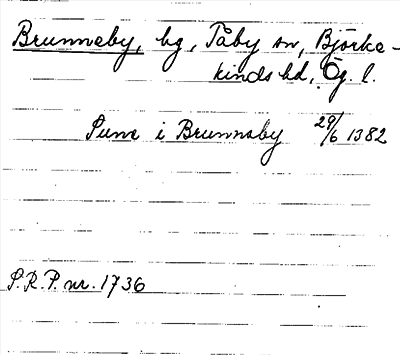 Brunneby, bg, Tåby sn, Björke-
kinds hd, Ög. l.
Sune i Brunnaby 29/6 1382
S.R.P. nr. 1736